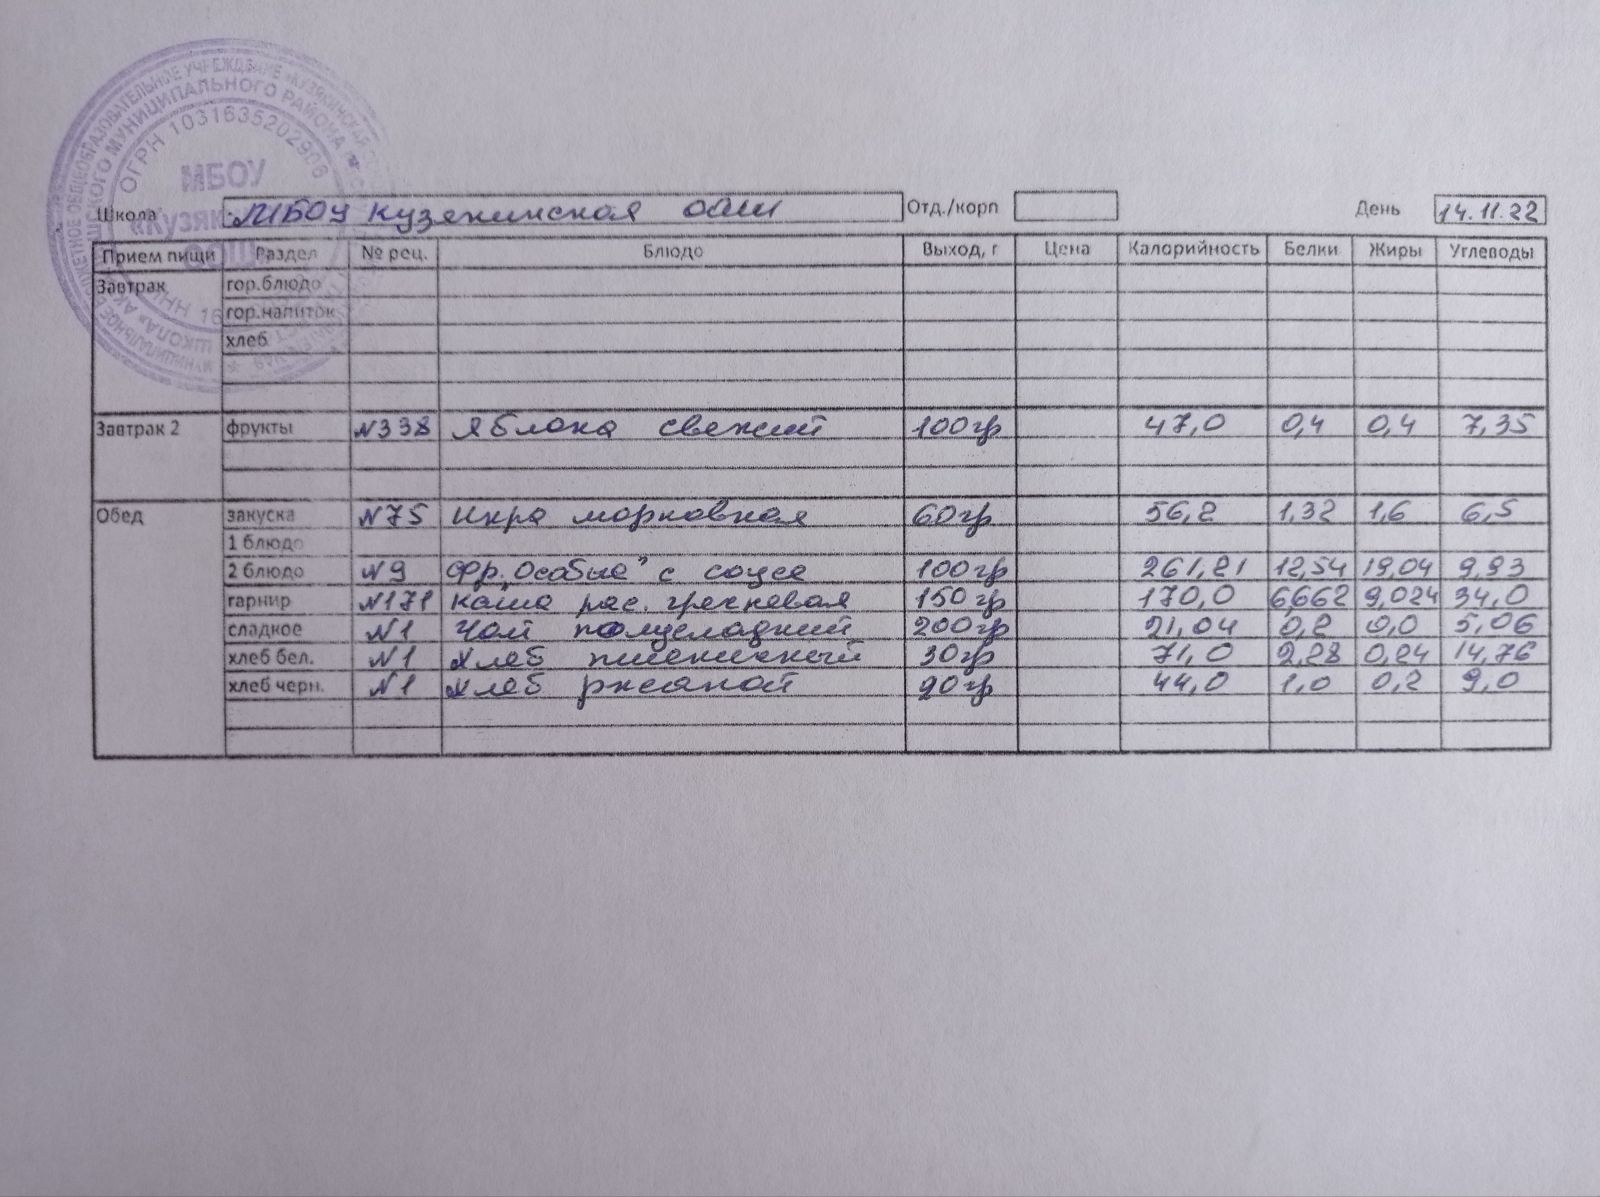 МУНИЦИПАЛЬНОГО РАЙОНА
ОГРН 1031635202906
МБОУ
Школа МБОУ Кузякинская ООШ Отд./корп День 14.11.22
Прием пищи Раздел № рец. Блюдо Выход, г Цена Калорийность Белки Жиры Углеводы
Завтрак гор.блюдо
гор.напиток
хлеб
Завтрак 2 фрукты №338 Яблока свежий 100гр 47,0 0,4 0,4 7,35
Обед закуска №75 Икра морковная 60гр 56,2 1,32 1,6 6,5
1 блюдо
2 блюдо №9 Фр. "Особые" с соусе 100гр 261,21 12,54 19,04 9,93
гарнир №171 Каша рас. гречневая 150гр 170,0 6,662 9,024 34,0
сладкое №1 Чай полусладкий 200гр 21,04 0,2 0,0 5,06
хлеб бел. №1 Хлеб пшеничный 30гр 71,0 2,28 0,24 14,76
хлеб черн. №1 Хлеб ржаной 20гр 44,0 1,0 0,2 9,0